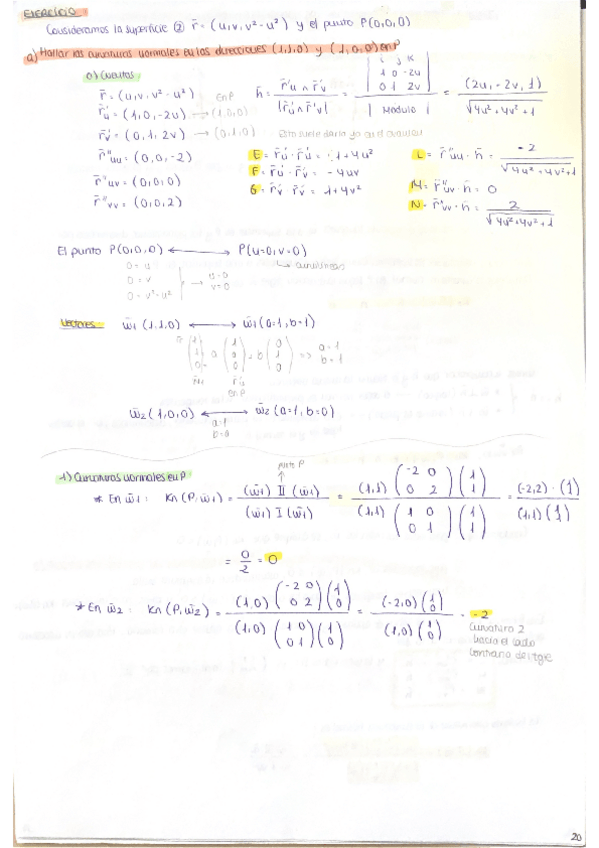 EJERCICIO
Consideramos la superficie ② r̄ = (u,v,v²-u²) y el punto P(0,0,0)
a) Hallar las curvaturas normales en las direcciones (1,1,0) y (1,0,0) en P
0) Cuentas
r̄ = (u,v,v²-u²) en P
r̄'u = (1,0,-2u) → (1,0,0)
r̄'v = (0,1,2v) → (0,1,0)
r̄''uu = (0,0,-2)
r̄''uv = (0,0,0)
r̄''vv = (0,0,2)
n̄ = r̄'u ∧ r̄'v / |r̄'u ∧ r̄'v| = | i j k / 1 0 -2u / 0 1 2v | / | Módulo | = (2u,-2v,1) / √4u²+4v²+1
Esto suele darlo ya en el
E = r̄'u · r̄'u = 1+4u²
F = r̄'u · r̄'v = -4uv
G = r̄'v · r̄'v = 1+4v²
L = r̄''uu · n̄ = -2 / √4u²+4v²+1
M = r̄''uv · n̄ = 0
N = r̄''vv · n̄ = 2 / √4u²+4v²+1
El punto P(0,0,0) ⟷ P(u=0,v=0)
0 = u
0 = v
0 = v²-u²
→ u=0
v=0
↳ curvilíneas
Vectores: w̄1 (1,1,0) ⟷ w̄1 (a=1,b=1)
(1 1 0) = a (1 0 0) + b (0 1 0) ⇒ a=1
b=1
w̄1 r̄'u
en P
w̄2 (1,0,0) ⟷ w̄2 (a=1,b=0)
a=1
b=0
1) Curvaturas normales en P
punto P
* En w̄1: Kn (P,w̄1) = (w̄1) II (w̄1) / (w̄1) I (w̄1) = (1,1) (-2 0 / 0 2) (1 / 1) / (1,1) (1 0 / 0 1) (1 / 1) = (-2,2) · (1 / 1) / (1,1) (1 / 1)
= 0/2 = 0
* En w̄2: Kn (P,w̄2) = (1,0) (-2 0 / 0 2) (1 / 0) / (1,0) (1 0 / 0 1) (1 / 0) = (-2,0) (1 / 0) / (1,0) (1 / 0) = -2
Curvatura 2
hacia el lado
contrario de
20